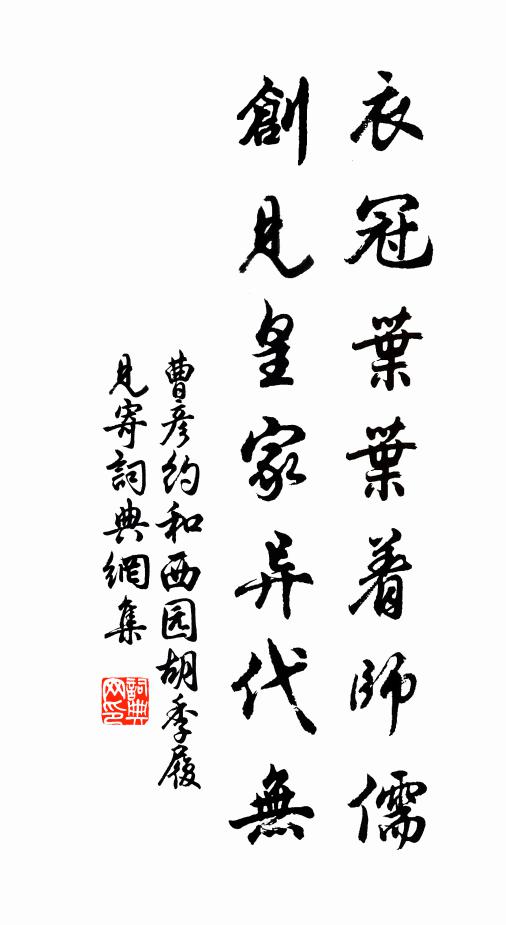 衣冠葉葉着師儒
創見皇家异代無
曹彦約和西园胡季履
見寄詞典網集
詞典网印